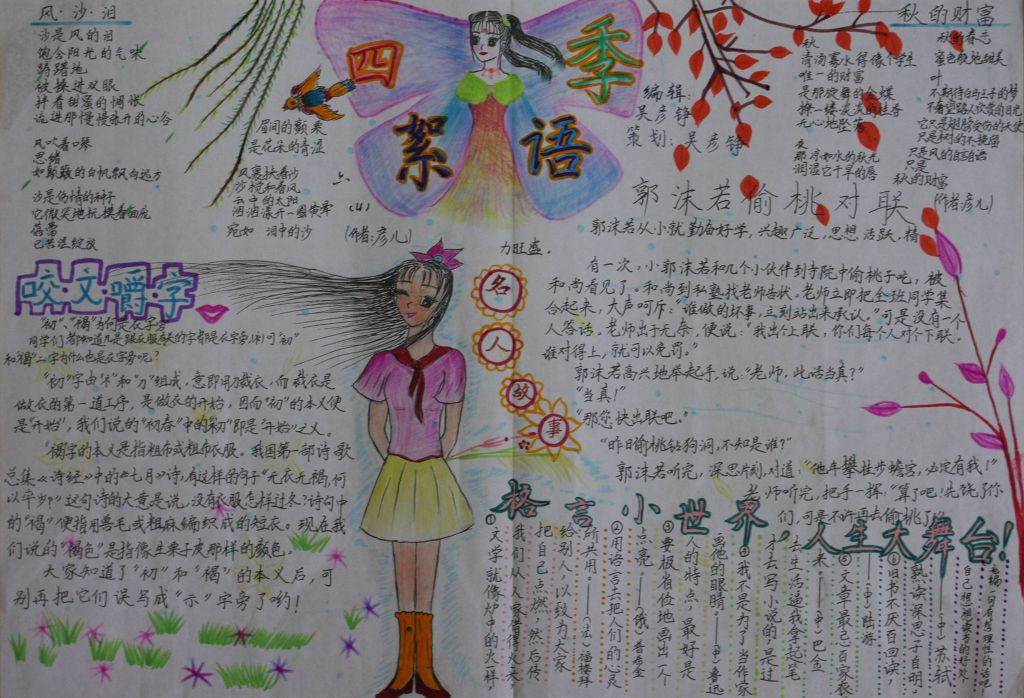 风·沙·泪
沙是风的泪
饱含阳光的气味
踌躇地
被揍进双眼
拌着甜蜜的惆怅
流进那慢慢张开的心谷
风吹着口琴
思绪
如鼓鼓的白帆飘向远方
沙是伤情的种子
它微笑地抚摸着田庞
蓓蕾
已苦涩绽放
眉间的颤栗
是花朵的青涩
风裹挟着沙
沙搅和着风
云中的太阳
泪泪漾开一圈黄晕
宛如 泪中的沙
(作者:彦儿)
四季
絮语
编辑:
吴彦铮
策划:吴彦铮
秋的财富
秋
青滴露水得像个学生
唯一的财富
无心地坠落
夜
那河如水的秋光
润湿它干旱的唇
秋的眷恋
叶
不期待白马王子的梦
不奢望路人欣赏的目光
它只是翅膀受伤的天使
只是树的不挽留
只是风的自言自语
只是
秋的财富
(作者:彦儿)
郭沫若偷桃对联
郭沫若从小就勤奋好学，兴趣广泛，思想活跃，精
力旺盛。
有一次，小郭沫若和几个小伙伴到寺院中偷桃子吃，被
和尚看见了。和尚到私塾找老师告状。老师立即把全班同学集
合起来，大声呵斥：“谁做的坏事，立刻站出来承认。”可是没有一个
人答话。老师出于无奈，便说：“我出个上联，你们每个人对个下联。
谁对得上，就可以免罚。”
郭沫若高兴地举起手，说：“老师，此话当真？”
“当真！”
“那您快出联吧。”
“昨日偷桃钻狗洞，不知是谁？”
郭沫若听完，深思片刻，对道：“他年攀桂步蟾宫，必定有我！”
老师听完，把手一挥：“算了吧！先饶了你
们，可是不许再去偷桃了。”
名
人
故
事
咬·文·嚼·字
“初”、“褐”为何是衣字旁
同学们都知道凡是跟衣服有关的字都是衣字旁(衤)可“初”
和“褐”一字为什么也是衣字旁呢？
“初”字由“衤”和“刀”组成，意即用刀裁衣，而裁衣是
做衣的第一道工序，是做衣的开始，因而“初”的本义便
是“开始”，我们说的“初春”中的“初”即是“开始”之义。
“褐”字的本义是指粗布或粗布衣服。我国第一部诗歌
总集《诗经》中的《七月》诗，有这样的句子“无衣无褐，何
以卒岁？”这句诗的大意是说，没有衣服怎样过冬？诗句中
的“褐”便指用兽毛或粗麻编织成的短衣。现在我
们说的“褐色”是指像生栗子皮那样的颜色。
大家知道了“初”和“褐”的本义后，可
别再把它们误写成“示”字旁了哟！
格言小世界，人生大舞台！
①文学就像炉中的火一样
我们从人家借得火来
把自己点燃，然后传
给别人，以致为大家
所共用。——(法)福楼拜
②用语言去把人们的心灵
点亮——(俄)普希金
③要极省俭地画出一个
人的特点，最好是
画他的眼睛——(中)鲁迅
④我不是为了当作家
才去写小说的，是过
去生活逼我拿起笔
来——(中)巴金
⑤文章最忌百家衣
——(中)陆游
⑥旧书不厌百回读
熟读深思子自明
——(中)苏轼